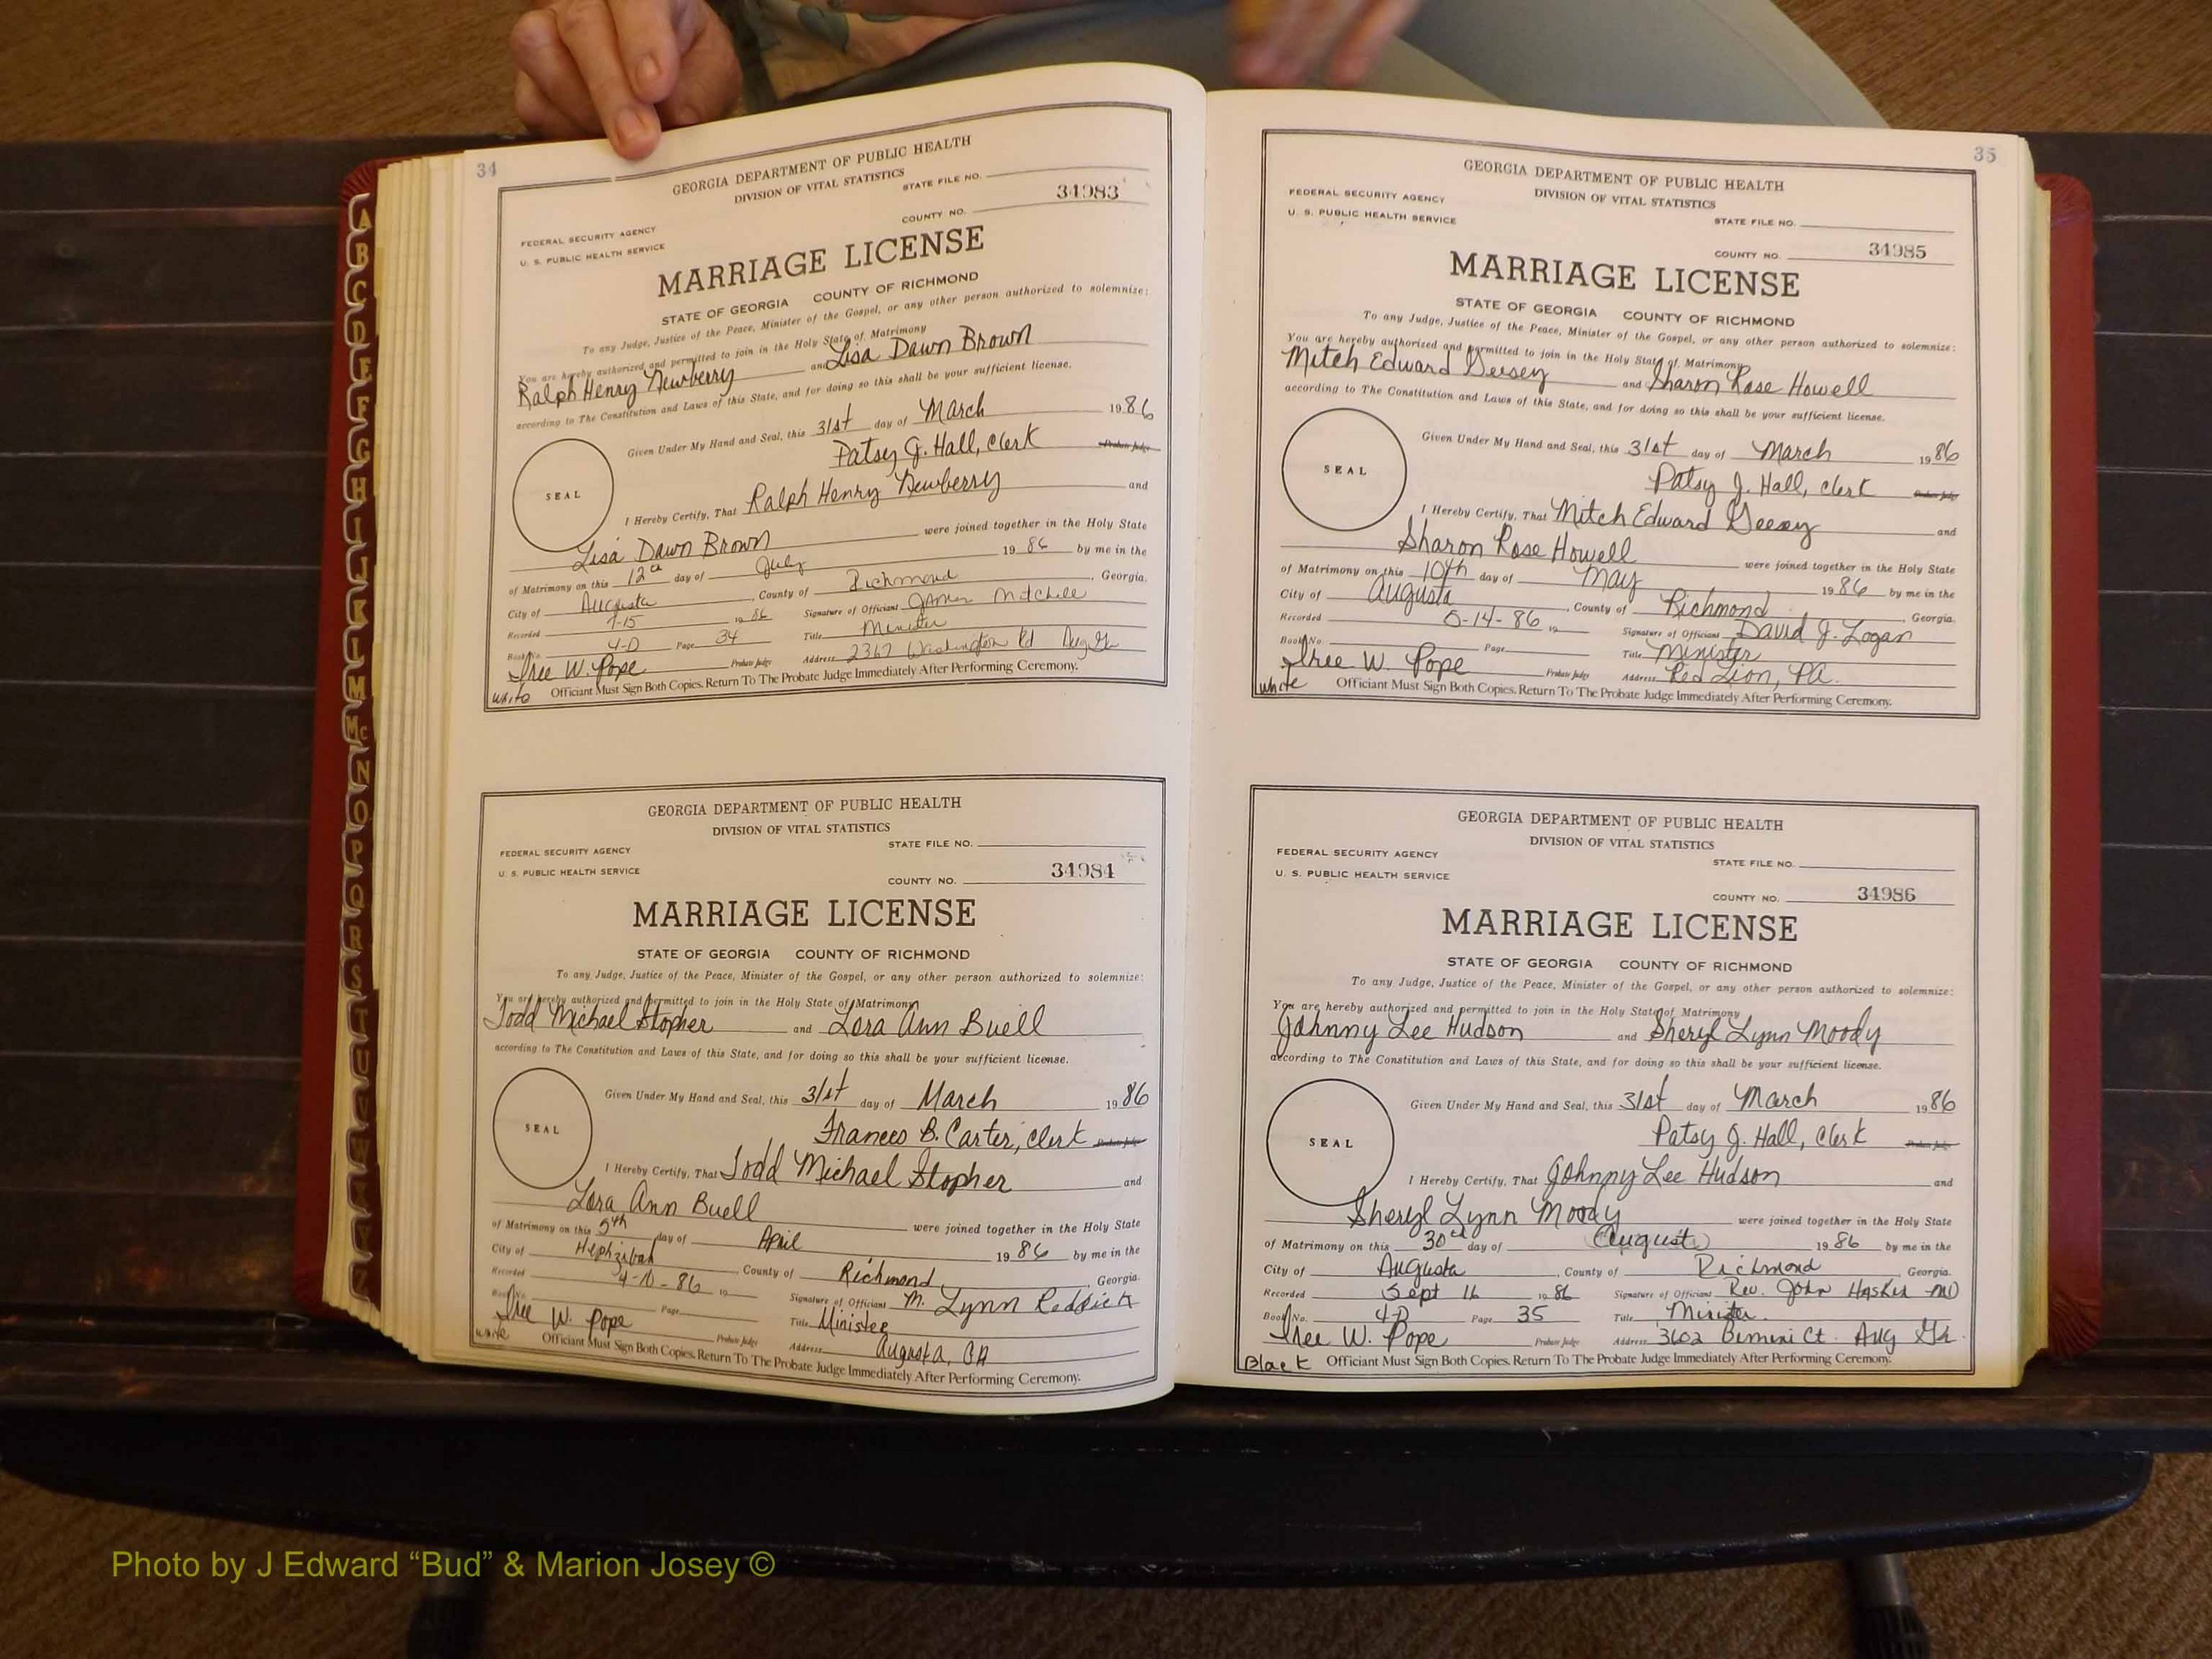 34
GEORGIA DEPARTMENT OF PUBLIC HEALTH
DIVISION OF VITAL STATISTICS
STATE FILE NO.
COUNTY NO. 34983
FEDERAL SECURITY AGENCY
U. S. PUBLIC HEALTH SERVICE
MARRIAGE LICENSE
STATE OF GEORGIA COUNTY OF RICHMOND
To any Judge, Justice of the Peace, Minister of the Gospel, or any other person authorized to solemnize:
You are hereby authorized and permitted to join in the Holy State of Matrimony
Ralph Henry Newberry and Lisa Dawn Brown
according to The Constitution and Laws of this State, and for doing so this shall be your sufficient license.
Given Under My Hand and Seal, this 31st day of March 1986
Patsy J. Hall, Clerk Probate Judge
SEAL
I Hereby Certify, That Ralph Henry Newberry and
Lisa Dawn Brown were joined together in the Holy State
of Matrimony on this 12th day of July 1986 by me in the
City of Augusta, County of Richmond, Georgia.
Recorded 7-15 1986 Signature of Officiant James Mitchell
Book No. 4-D Page 34 Title Minister
W. Pope Probate Judge Address 2367 Washington Rd Aug Ga
white Officiant Must Sign Both Copies. Return To The Probate Judge Immediately After Performing Ceremony.
GEORGIA DEPARTMENT OF PUBLIC HEALTH
DIVISION OF VITAL STATISTICS
STATE FILE NO.
FEDERAL SECURITY AGENCY
U. S. PUBLIC HEALTH SERVICE
COUNTY NO. 34984
MARRIAGE LICENSE
STATE OF GEORGIA COUNTY OF RICHMOND
To any Judge, Justice of the Peace, Minister of the Gospel, or any other person authorized to solemnize:
You are hereby authorized and permitted to join in the Holy State of Matrimony
Todd Michael Stopher and Lora Ann Buell
according to The Constitution and Laws of this State, and for doing so this shall be your sufficient license.
Given Under My Hand and Seal, this 31st day of March 1986
Frances B. Carter, Clerk Probate Judge
SEAL
I Hereby Certify, That Todd Michael Stopher and
Lora Ann Buell were joined together in the Holy State
of Matrimony on this 5th day of April 1986 by me in the
City of Hephzibah, County of Richmond, Georgia
Recorded 4-10-86 19 Signature of Officiant M. Lynn Reddick
Book No. Page Title Minister
W. Pope Probate Judge Address Augusta, GA
white Officiant Must Sign Both Copies. Return To The Probate Judge Immediately After Performing Ceremony.
35
GEORGIA DEPARTMENT OF PUBLIC HEALTH
DIVISION OF VITAL STATISTICS
FEDERAL SECURITY AGENCY
U. S. PUBLIC HEALTH SERVICE
STATE FILE NO.
COUNTY NO. 34985
MARRIAGE LICENSE
STATE OF GEORGIA COUNTY OF RICHMOND
To any Judge, Justice of the Peace, Minister of the Gospel, or any other person authorized to solemnize:
You are hereby authorized and permitted to join in the Holy State of Matrimony
Mitch Edward Geesey and Sharon Rose Howell
according to The Constitution and Laws of this State, and for doing so this shall be your sufficient license.
Given Under My Hand and Seal, this 31st day of March 1986
Patsy J. Hall, Clerk Probate Judge
SEAL
I Hereby Certify, That Mitch Edward Geesey and
Sharon Rose Howell were joined together in the Holy State
of Matrimony on this 10th day of May 1986 by me in the
City of Augusta, County of Richmond, Georgia.
Recorded 5-14-86 19 Signature of Officiant David J. Logan
Book No. Page Title Minister
W. Pope Probate Judge Address Red Lion, PA.
white Officiant Must Sign Both Copies. Return To The Probate Judge Immediately After Performing Ceremony.
GEORGIA DEPARTMENT OF PUBLIC HEALTH
DIVISION OF VITAL STATISTICS
FEDERAL SECURITY AGENCY
U. S. PUBLIC HEALTH SERVICE
STATE FILE NO.
COUNTY NO. 34986
MARRIAGE LICENSE
STATE OF GEORGIA COUNTY OF RICHMOND
To any Judge, Justice of the Peace, Minister of the Gospel, or any other person authorized to solemnize:
You are hereby authorized and permitted to join in the Holy State of Matrimony
Johnny Lee Hudson and Sheryl Lynn Moody
according to The Constitution and Laws of this State, and for doing so this shall be your sufficient license.
Given Under My Hand and Seal, this 31st day of March 1986
Patsy J. Hall, Clerk Probate Judge
SEAL
I Hereby Certify, That Johnny Lee Hudson and
Sheryl Lynn Moody were joined together in the Holy State
of Matrimony on this 30th day of August 1986 by me in the
City of Augusta, County of Richmond, Georgia.
Recorded Sept 16 1986 Signature of Officiant Rev. John
Book No. 4-D Page 35 Title Minister.
W. Pope Probate Judge Address 3602 Bimini Ct. Aug Ga.
Black Officiant Must Sign Both Copies. Return To The Probate Judge Immediately After Performing Ceremony.
A
B
C
D
E
F
G
H
I
J
K
L
M
Mc
N
O
P
Q
R
S
T
U
V
W
Photo by J Edward “Bud” & Marion Josey ©